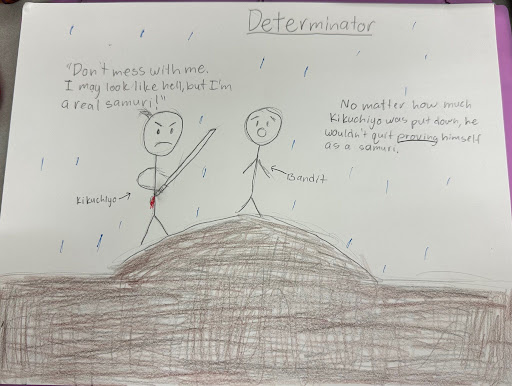 Determinator
"Don't mess with me.
I may look like hell, but I'm
a real samuri!"
No matter how much
Kikuchiyo was put down, he
wouldn't quit proving himself
as a samuri.
Kikuchiyo
Bandit